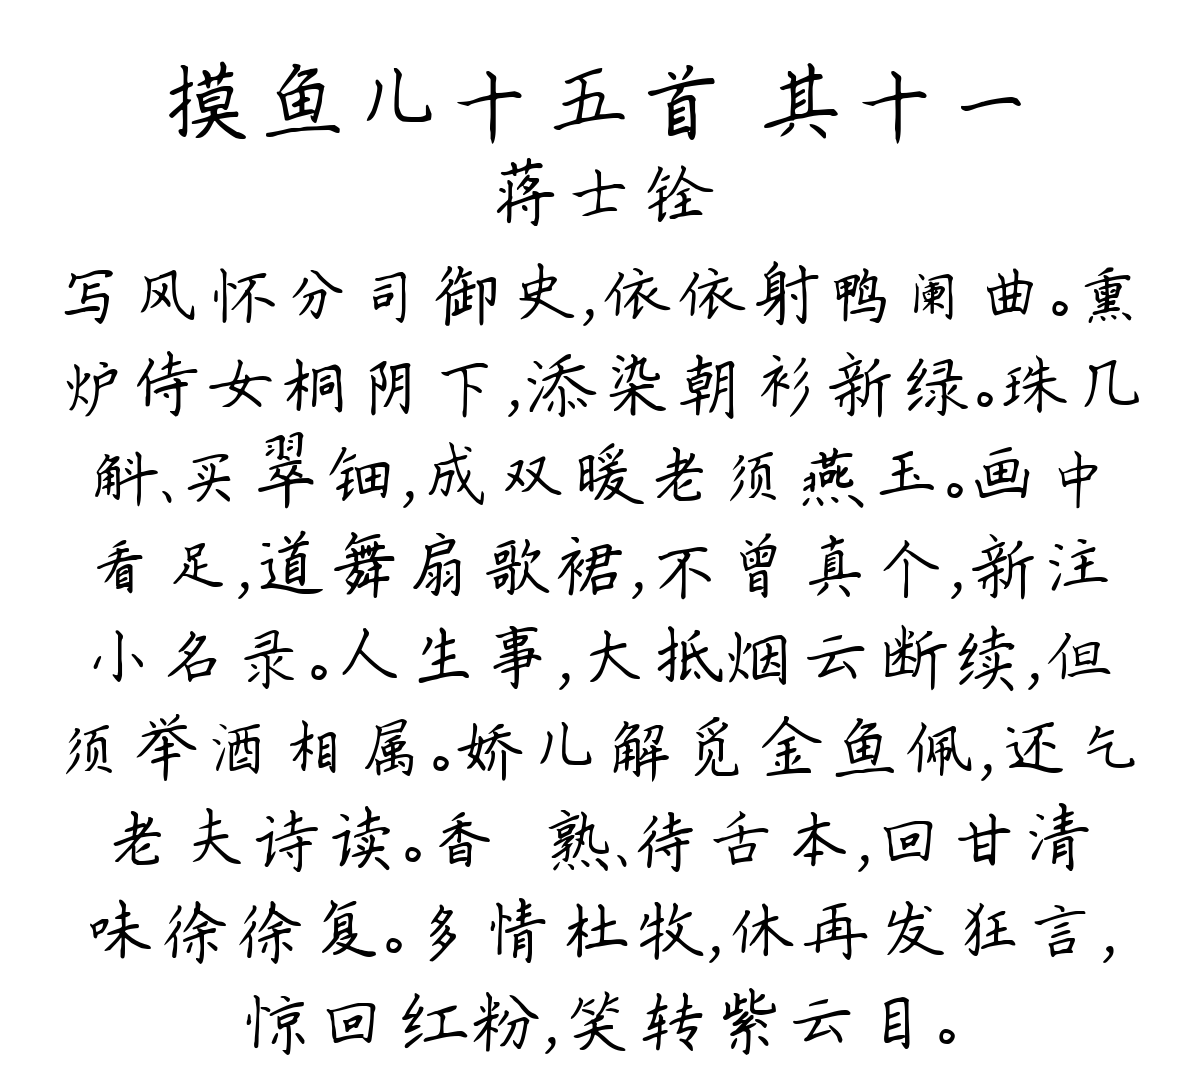 摸鱼儿十五首 其十一
蒋士铨
写风怀分司御史,依依射鸭阑曲。熏
炉侍女桐阴下,添染朝衫新绿。珠几
斛、买翠钿,成双暖老须燕玉。画中
看足,道舞扇歌裙,不曾真个,新注
小名录。人生事,大抵烟云断续,但
须举酒相属。娇儿解觅金鱼佩,还乞
老夫诗读。香 熟、待舌本,回甘清
味徐徐复。多情杜牧,休再发狂言,
惊回红粉,笑转紫云目。